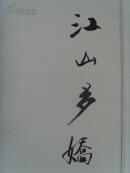 江山多嬌